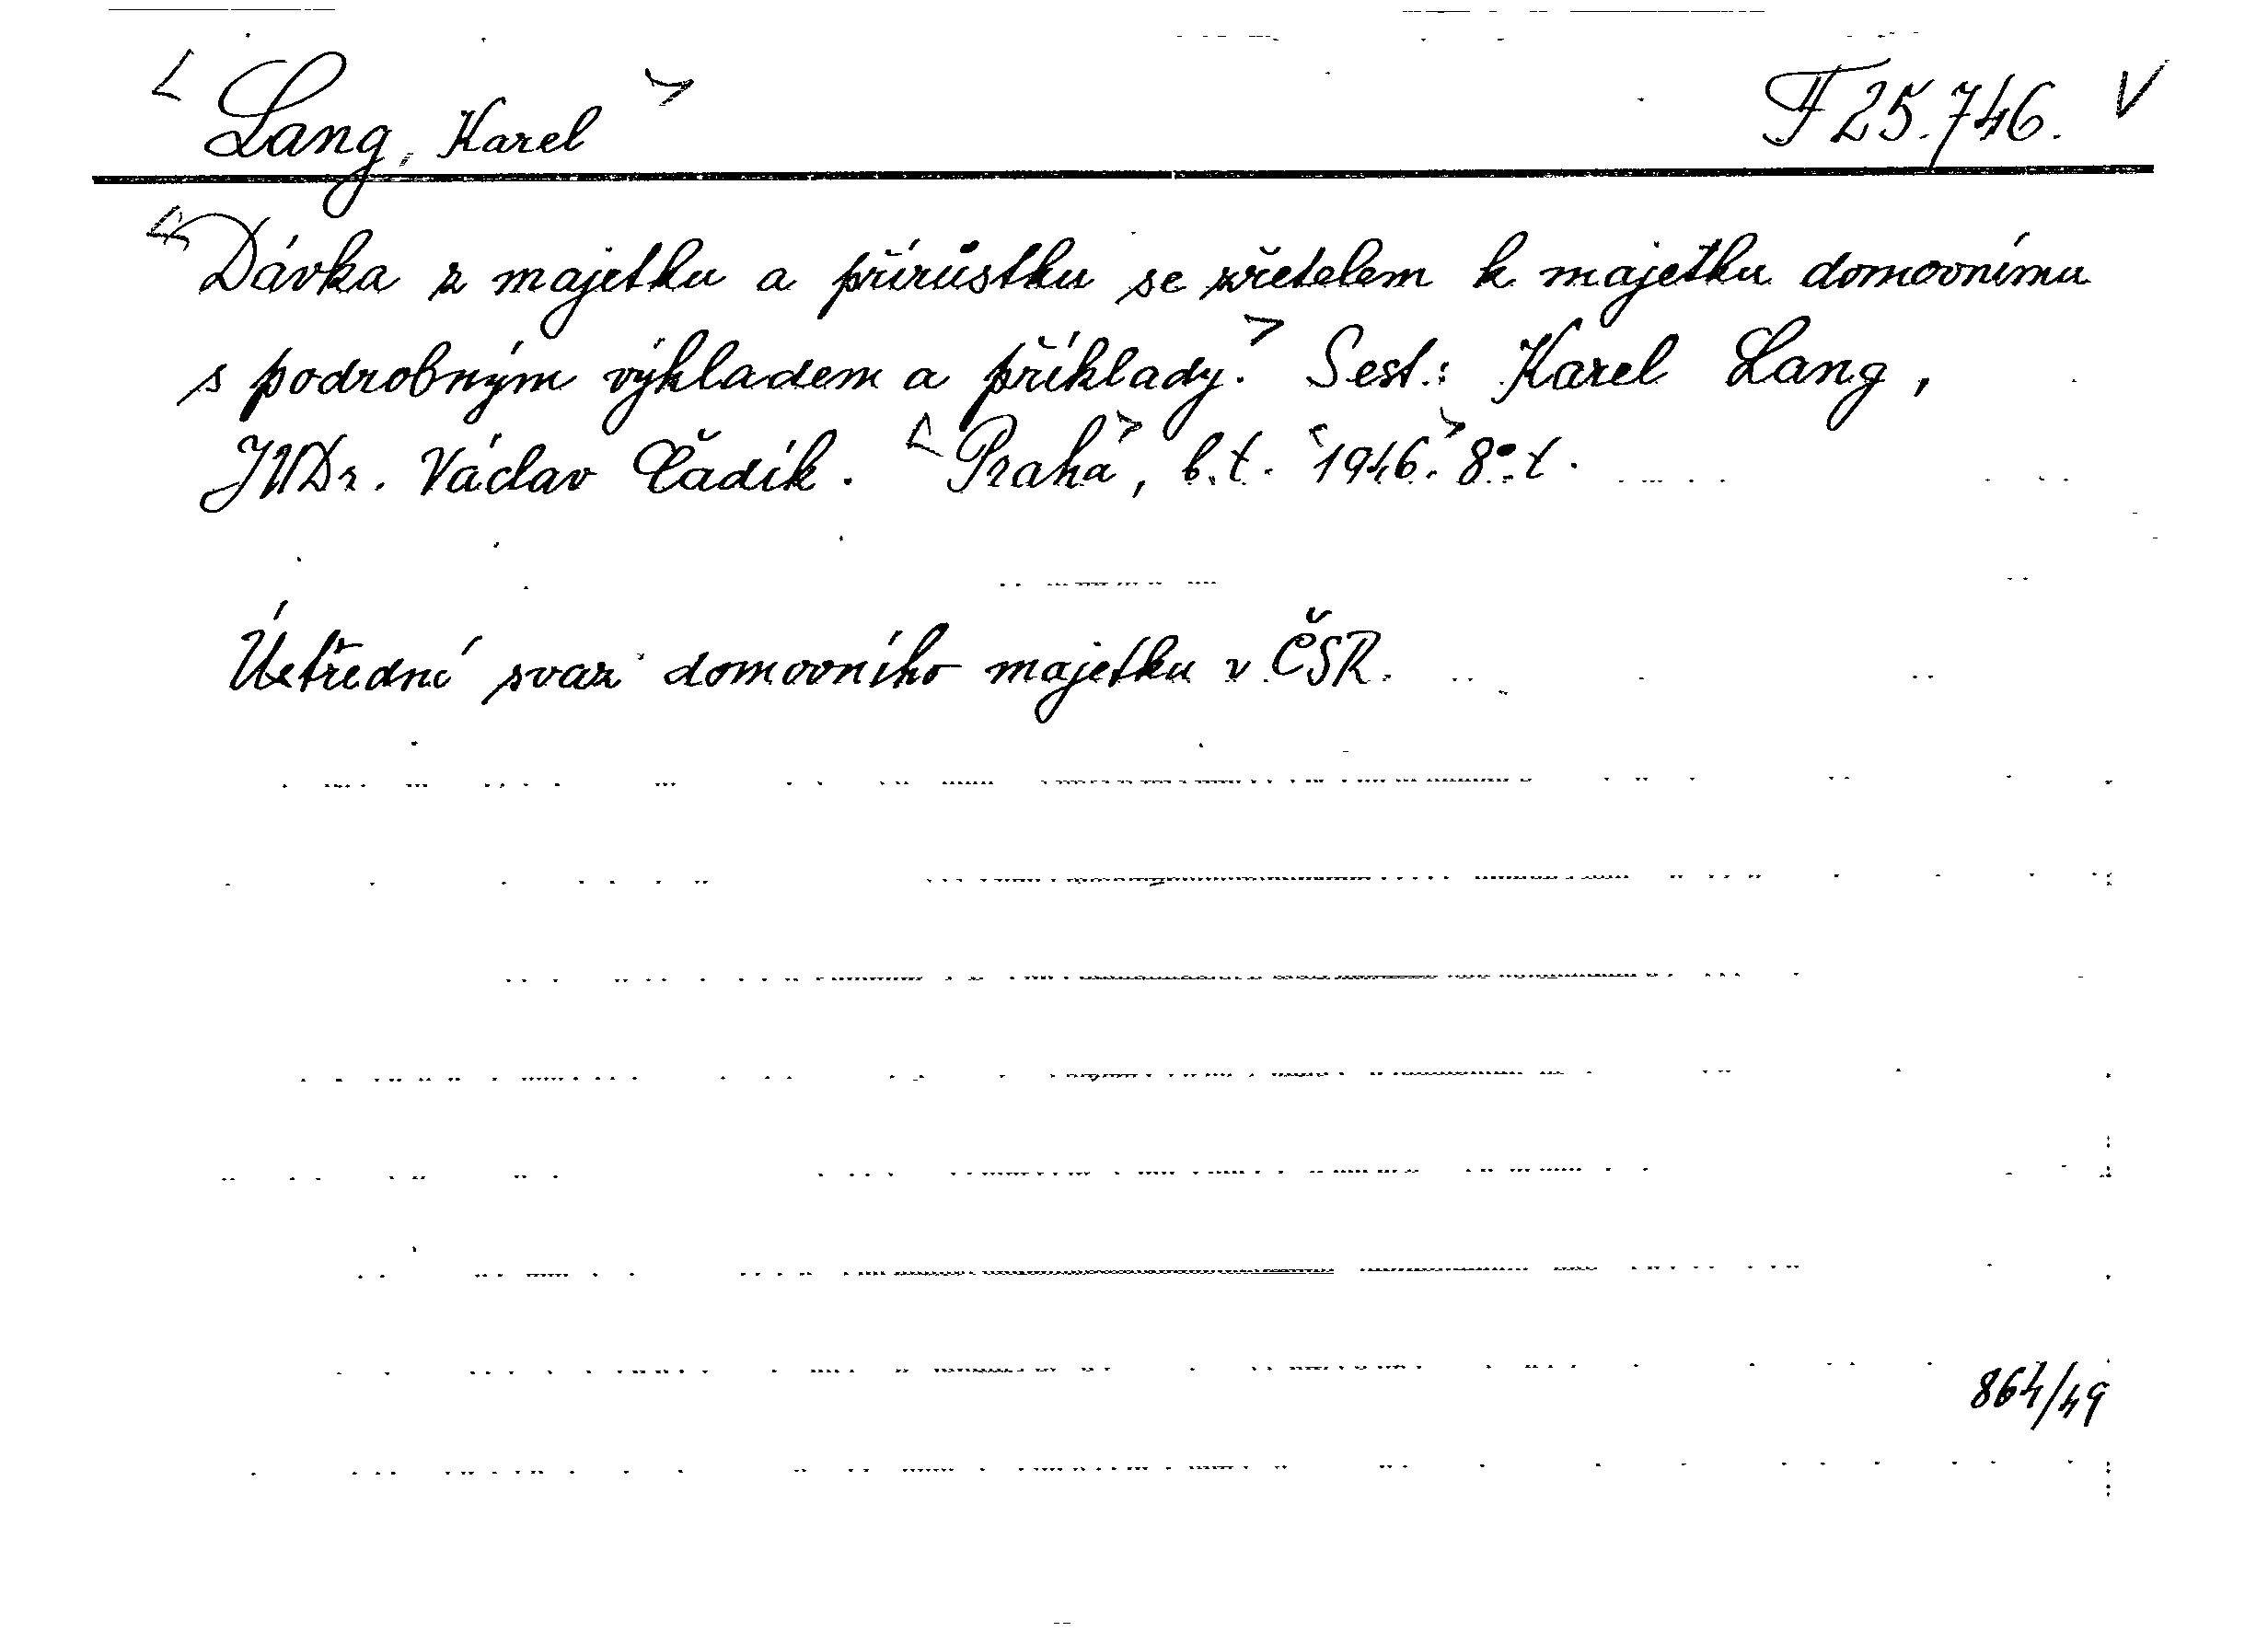 <Lang, Karel> F 25.746. V
<Dávka z majetku a přírůstku se zřetelem k majetku domovnímu
s podrobným výkladem a příklady.> Sest.: Karel Lang,
JUDr. Václav Čadík. <Praha>, b.t. <1946.> 8°. t.
Ústřední svaz domovního majetku v ČSR.
864/49